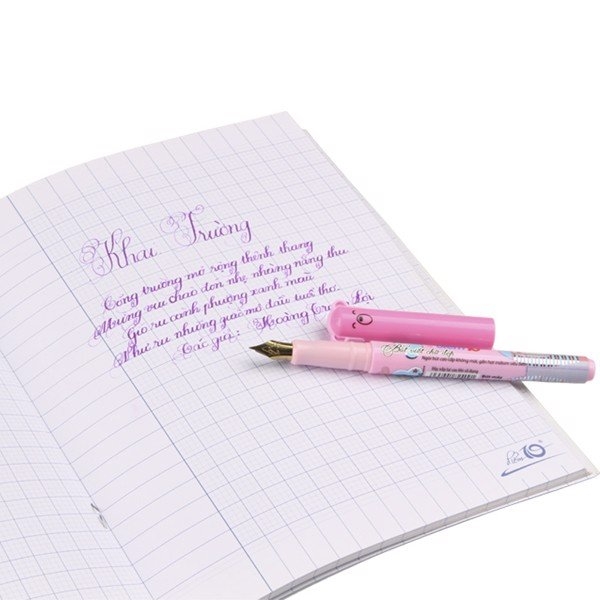 Khai Trường
Cổng trường mở rộng thênh thang
Mừng vui chào đón nhẹ nhàng nắng thu
Gió ru cành phượng xanh màu
Như ru những giấc mơ đầu tuổi thơ.
Tác giả: Hoàng Trọng Lợi
Bút viết chữ đẹp